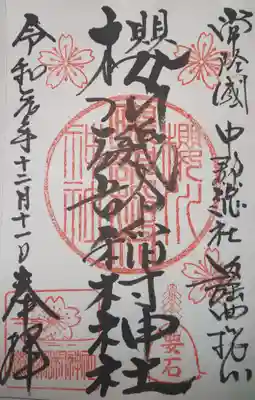 常陸國 中郡総社 謡曲桜川
櫻川磯部稲村神社
令和元年十二月十一日 奉拝
要石